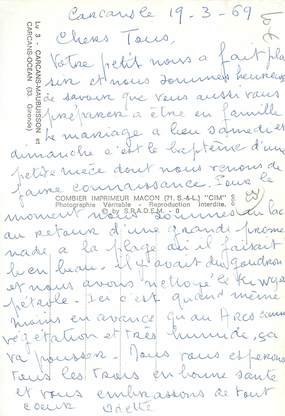 Carcans le 19-3-69
Chers Tous,
Votre petit nous a fait plai
sir et nous sommes heureux
de savoir que vous aussi vous
préparer a être en famille
Le mariage a lieu samedi et
dimanche c'est le baptême d'une
petite nièce dont nous venons de
faire connaissance. Pour le
moment nous sommes au lac
au retour d'une grande prome
nade a la plage où il faisait
bien beau. il y avait du goudron
et nous avons nettoyé le
pétrole - Ici c'est quand même
moins en avance qu'au Arcs comme
végétation et très humide, ça
va pousser. Nous vous espérons
tous les trois en bonne santé
et vous embrassons de tout
cœur Odette
Lv 3 - CARCANS-MAUBUISSON et
CARCANS-OCÉAN (33 Gironde)
COMBIER IMPRIMEUR MACON (71, S.-&-L.) "CIM"
Photographie Véritable - Reproduction Interdite
© by S.P.A.D.E.M. - 0